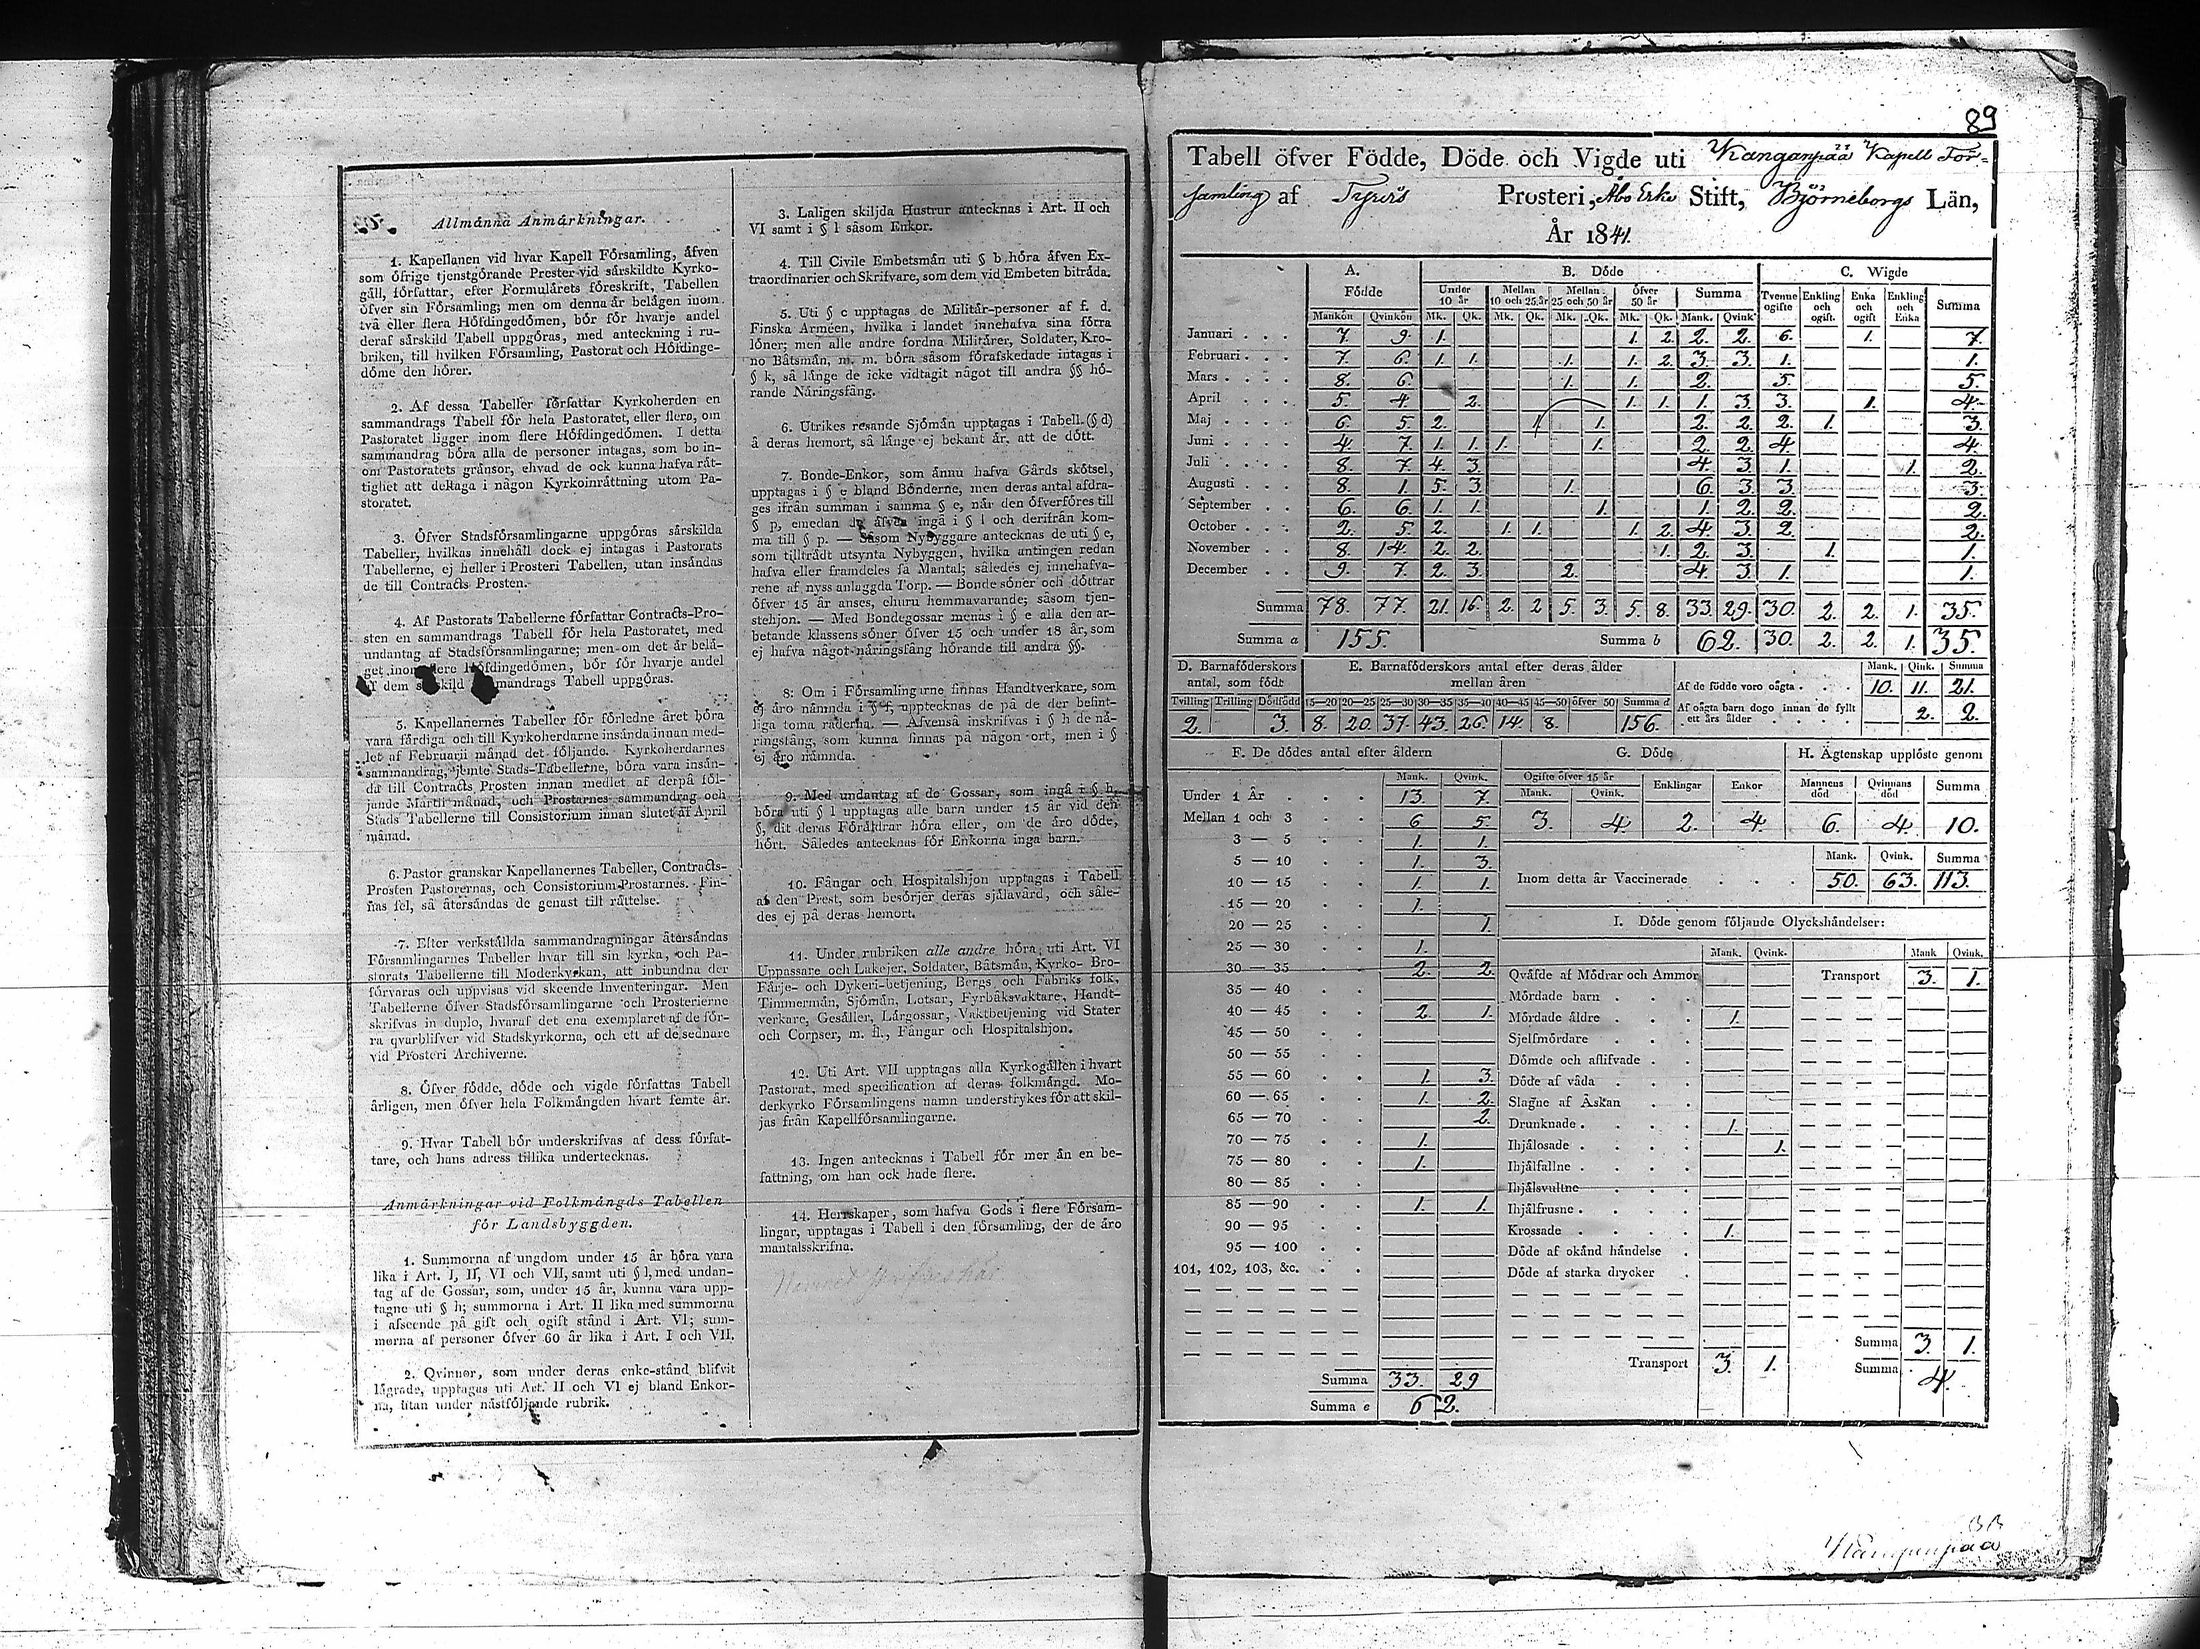 Allmänna Anmärkningar.
1. Kapellanen vid hvar Kapell Församling, äfven
som öfrige tjenstgörande Prester vid särskildte Kyrko-
gäll, författar, efter Formulärets föreskrift, Tabellen
öfver sin Församling; men om denna är belägen inom
två eller flera Höfdingedömen, bör för hvarje andel
deraf särskild Tabell uppgöras, med anteckning i ru-
briken, till hvilken Församling, Pastorat och Höfdinge-
döme den hörer.
2. Af dessa Tabeller författar Kyrkoherden en
sammandrags Tabell för hela Pastoratet, eller flera, om
Pastoratet ligger inom flere Höfdingedömen. I detta
sammandrag böra alla de personer intagas, som bo in-
om Pastoratets gränsor, ehvad de ock kunna hafva rät-
tighet att deltaga i någon Kyrkoinrättning utom Pa-
storatet.
3. Öfver Stadsförsamlingarne uppgöras särskilda
Tabeller, hvilkas innehåll dock ej intages i Pastorats
Tabellerne, ej heller i Prosteri Tabellen, utan insändas
de till Contracts Prosten.
4. Af Pastorats Tabellerne författar Contracts-Pro-
sten en sammandrags Tabell för hela Pastoratet, med
undantag af Stadsförsamlingarne; men om det är belä-
get inom flere Höfdingedömen, bör för hvarje andel
af dem särskild sammandrags Tabell uppgöras.
5. Kapellanernes Tabeller för förledne året böra
vara färdiga och till Kyrkoherdarne insända innan med-
let af Februarii månad det följande. Kyrkoherdarnes
sammandrag, jemte Stads-Tabellerne, böra vara insän-
da till Contracts Prosten innan medlet af derpå föl-
jande Martii månad, och Prostarnes sammandrag och
Stads Tabellerne till Consistorium innan slutet af April
månad.
6. Pastor granskar Kapellanernes Tabeller, Contracts-
Prosten Pastorernas, och Consistorium Prostarnes. Fin-
nas fel, så återsändas de genast till rättelse.
7. Efter verkställda sammandragningar återsändas
Församlingarnes Tabeller hvar till sin kyrka, och Pa-
storats Tabellerne till Moderkyrkan, att inbundna der
förvaras och uppvisas vid skeende Inventeringar. Men
Tabellerne öfver Stadsförsamlingarne och Prosterierne
skrifvas in duplo, hvaraf det ena exemplaret af de för-
ra qvarblifver vid Stadskyrkorna, och ett af de sednare
vid Prosteri Archiverne.
8. Öfver födde, döde och vigde författas Tabell
årligen, men öfver hela Folkmängden hvart femte år.
9. Hvar Tabell bör underskrifvas af dess förfat-
tare, och hans adress tillika undertecknas.
Anmärkningar vid Folkmängds Tabellen
för Landsbyggden.
1. Summorna af ungdom under 15 år böra vara
lika i Art. I, II, VI och VII, samt uti § l, med undan-
tag af de Gossar, som, under 15 år, kunna vara upp-
tagne uti § h; summorna i Art. II lika med summorna
i afseende på gift och ogift stånd i Art. VI; sum-
morna af personer öfver 60 år lika i Art. I och VII.
2. Qvinnor, som under deras enke-stånd blifvit
lägrade, upptagas uti Art. II och VI ej bland Enkor-
na, utan under nästföljande rubrik.
3. Laligen skiljda Hustrur antecknas i Art. II och
VI samt i § l såsom Enkor.
4. Till Civile Embetsmän uti § b höra äfven Ex-
traordinarier och Skrifvare, som dem vid Embeten biträda.
5. Uti § c upptagas de Militär-personer af f. d.
Finska Arméen, hvilka i landet innehafva sina förra
löner; men alle andre fordna Militärer, Soldater, Kro-
no Båtsmän, m. m. böra såsom förafskedade intagas i
§ k, så länge de icke vidtagit något till andra §§ hö-
rande Näringsfång.
6. Utrikes resande Sjömän upptagas i Tabell. (§ d)
å deras hemort, så länge ej bekant är, att de dött.
7. Bonde-Enkor, som ännu hafva Gårds skötsel,
upptagas i § e bland Bönderne, men deras antal afdra-
ges ifrån summan i samma § e, när den öfverföres till
§ p, emedan de äfven ingå i § l och derifrån kom-
ma till § p. — Såsom Nybyggare antecknas de uti § e,
som tillträdt utsynta Nybyggen, hvilka antingen redan
hafva eller framdeles få Mantal; således ej innehafva-
rene af nyss anlaggda Torp. — Bonde söner och döttrar
öfver 15 år anses, churu hemmavarande; såsom tjen-
stehjon. — Med Bondegossar menas i § e alla den ar-
betande klassens söner öfver 15 och under 18 år, som
ej hafva något näringsfång hörande till andra §§.
8: Om i Församlingarne finnas Handtverkare, som
ej äro nämnda i § f, upptecknas de på de der befint-
liga toma raderna. — Afvensä inskrifvas i § h de nä-
ringsfång, som kunna finnas på någon ort, men i §
ej äro nämnda.
9. Med undantag af de Gossar, som ingå i § h,
böra uti § l upptagas alle barn under 15 år vid den
§, dit deras Föräldrar höra eller, om de äro döde,
hört. Således antecknas för Enkorna inga barn.
10. Fångar och Hospitalshjon upptagas i Tabell
af den Prest, som besörjer deras själavård, och såle-
des ej på deras hemort.
11. Under rubriken alle andre höra, uti Art. VI
Uppassare och Lakejer, Soldater, Båtsmän, Kyrko- Bro-
Färje- och Dykeri-betjening, Bergs och Fabriks folk,
Timmermän, Sjömän, Lotsar, Fyrbåksvaktare, Handt-
verkare, Gesäller, Lärgossar, Vaktbetjening vid Stater
och Corpser, m. fl., Fångar och Hospitalshjon.
12. Uti Art. VII upptagas alla Kyrkogällen i hvart
Pastorat, med specification af deras folkmängd. Mo-
derkyrko Församlingens namn understrykes för att skil-
jas från Kapellförsamlingarne.
13. Ingen antecknas i Tabell för mer än en be-
fattning, om han ock hade flere.
14. Herrskaper, som hafva Gods i flere Försam-
lingar, upptagas i Tabell i den församling, der de äro
mantalsskrifna.
89
Tabell öfver Födde, Döde och Vigde uti Kanganpää Kapell För-
samling af Tyrvis Prosteri, Åbo Erke Stift, Björneborgs Län,
År 1841.
A. Födde B. Döde C. Wigde
Under 10 år Mellan 10 och 25 år Mellan 25 och 50 år Öfver 50 år Summa Tvenne ogifte Enkling och ogift. Enka och ogift Enkling och Enka Summa
Mankön Qvinkön Mk. Qk. Mk. Qk. Mk. Qk. Mk. Qk. Mank. Qvink.
Januari . . . 7. 9. 1. 1. 2. 2. 2. 6. 1. 7.
Februari . . . 7. 6. 1. 1. 1. 1. 2. 3. 3. 1. 1.
Mars . . . . 8. 6. 1. 1. 2. 5. 5.
April . . . 5. 4. 2. 1. 1. 1. 3. 3. 1. 4.
Maj . . . . 6. 5. 2. 1. 1. 2. 2. 2. 1. 3.
Juni . . . . 4. 7. 1. 1. 1. 1. 2. 2. 4. 4.
Juli . . . . 8. 7. 4. 3. 4. 3. 1. 1. 2.
Augusti . . . 8. 1. 5. 3. 1. 6. 3. 3. 3.
September . . 6. 6. 1. 1. 1. 1. 2. 2. 2.
October . . . 2. 5. 2. 1. 1. 1. 2. 4. 3. 2. 2.
November . . 8. 14. 2. 2. 1. 2. 3. 1. 1.
December . . 9. 7. 2. 3. 2. 4. 3. 1. 1.
Summa 78. 77. 21. 16. 2. 2 5. 3. 5. 8. 33 29. 30. 2. 2. 1. 35.
Summa a 155. Summa b 62. 30. 2. 2. 1. 35.
D. Barnaföderskors antal, som födt
Tvilling Trilling Dödfödd
2. 3.
E. Barnaföderskors antal efter deras ålder mellan åren
15—20 20—25 25—30 30—35 35—40 40—45 45—50 öfver 50 Summa d
8. 20. 37. 43. 26. 14. 8. 156.
Mank. Qink. Summa
Af de födde voro oägta . . . 10. 11. 21.
Af oägta barn dogo innan de fyllt
ett års ålder . . . . 2. 2.
F. De dödes antal efter åldern
Mank. Qvink.
Under 1 År . . . 13. 7.
Mellan 1 och 3 . . 6 5.
3 — 5 . . 1. 1.
5 — 10 . . 1. 3.
10 — 15 . . 1. 1.
15 — 20 . . 1.
20 — 25 . . 1.
25 — 30 . . 1.
30 — 35 . . 2. 2.
35 — 40 . .
40 — 45 . . 2. 1.
45 — 50 . .
50 — 55 . .
55 — 60 . . 1. 3.
60 — 65 . . 1. 2.
65 — 70 . . 2.
70 — 75 . . 1.
75 — 80 . . 1.
80 — 85 . .
85 — 90 . . 1. 1.
90 — 95 . .
95 — 100 . .
101, 102, 103, &c. . .
Summa 33. 29
Summa e 62.
G. Döde
Ogifte öfver 15 år Enklingar Enkor
Mank. Qvink.
3. 4. 2. 4.
H. Ägtenskap upplöste genom
Mannens död Qvinnans död Summa
6. 4. 10.
Mank. Qvink. Summa
Inom detta år Vaccinerade . . . 50. 63. 113.
I. Döde genom följande Olyckshändelser:
Mank. Qvink. Mank Qvink.
Qväfde af Mödrar och Ammor Transport 3. 1.
Mördade barn . . .
Mördade äldre . . . 1.
Sjelfmördare . . .
Dömde och aflifvade . .
Döde af våda . . .
Slagne af Åskan . .
Drunknade . . . . 1.
Ihjälosade . . . . 1.
Ihjälfallne . . . .
Ihjälsvultne . . . .
Ihjälfrusne . . . .
Krossade . . . . 1.
Döde af okänd händelse .
Döde af starka drycker .
Summa 3. 1.
Transport 3. 1. Summa 4.